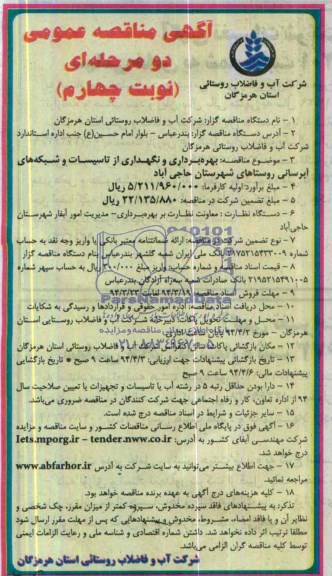 آگهی مناقصه عمومی
دو مرحله‌ای
(نوبت چهارم)
شرکت آب و فاضلاب روستائی
استان هرمزگان
۱ – نام دستگاه مناقصه گزار: شرکت آب و فاضلاب روستائی استان هرمزگان
۲ – آدرس دستگاه مناقصه گزار: بندرعباس – بلوار امام حسین(ع) جنب اداره استاندارد
شرکت آب و فاضلاب روستائی هرمزگان
۳ – موضوع مناقصه: بهره‌برداری و نگهداری از تاسیسات و شبکه‌های
آبرسانی روستاهای شهرستان حاجی آباد
۴ – مبلغ برآورد اولیه کارفرما: ۵/۲۱۱/۹۶۰/۰۰۰ ریال
۵ – مبلغ تضمین شرکت در مناقصه: ۲۲/۱۳۵/۸۸۰ ریال
۶ – دستگاه نظارت : معاونت نظارت بر بهره‌برداری – مدیریت امور آبفار شهرستان
حاجی‌آباد
۷ – نوع تضمین شرکت در مناقصه: ارائه ضمانتنامه معتبر بانکی یا واریز وجه نقد به حساب
بانک ملی ایران شعبه گلشهر بندرعباس بنام دستگاه مناقصه گزار
۸ – قیمت اسناد مناقصه و شماره حساب: واریز مبلغ ۳۰۰/۰۰۰ ریال به حساب سپهر شماره
بانک صادرات شعبه سه‌راه آزادگان بندرعباس
۹ – مهلت فروش اسناد مناقصه:
۱۰ – محل دریافت اسناد مناقصه: اداره امور حقوقی و قراردادها و رسیدگی به شکایات
۱۱ – محل و مهلت تحویل پاکات: دبیرخانه شرکت آب و فاضلاب روستایی استان
هرمزگان – مورخ ۹۴/۴/۲ پایان وقت اداری
۱۲ – مکان بازگشائی پاکات: سالن کنفرانس شرکت آب و فاضلاب روستائی استان هرمزگان
۱۳ – تاریخ بازگشائی پیشنهادات جهت ارزیابی: ۹۴/۴/۳ ساعت ۹ صبح * تاریخ بازگشایی
پیشنهادات مالی: ۹۴/۴/۶ ساعت ۹ صبح
۱۴ – دارا بودن حداقل رتبه ۵ در رشته آب یا تاسیسات و تجهیزات یا تعیین صلاحیت سال
۹۴ از اداره تعاون، کار و رفاه اجتماعی جهت شرکت کنندگان در مناقصه ضروری می‌باشد.
۱۵ – سایر جزئیات و شرایط در اسناد مناقصه درج شده است.
۱۶ – آگهی فوق در پایگاه ملی اطلاع رسانی مناقصات کشور و سایت مناقصه و مزایده
شرکت مهندسی آبفای کشور به آدرس: Iets.mporg.ir – tender.nww.co.ir
درج خواهد شد.
۱۷ – جهت اطلاع بیشتر می‌توانید به سایت شرکت به آدرس www.abfarhor.ir
مراجعه نمائید.
۱۸ – کلیه هزینه‌های درج آگهی به عهده برنده مناقصه خواهد بود.
تذکر: به پیشنهادهای فاقد سپرده مخدوش، سپرده کمتر از میزان مقرر، چک شخصی و
نظایر آن و یا فاقد امضاء، مشروط، مخدوش و پیشنهادهایی که پس از مهلت مقرر ارسال شود
مطلقا ترتیب اثر داده نخواهد شد. داشتن شماره اقتصادی و شناسه ملی و رعایت الزامات ایمنی
توسط کلیه مناقصه گران الزامی می‌باشد.
شرکت آب و فاضلاب روستائی استان هرمزگان